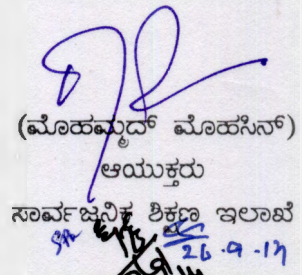 (ಮೊಹಮ್ಮದ್ ಮೊಹಸಿನ್)
ಆಯುಕ್ತರು
ಸಾರ್ವಜನಿಕ ಶಿಕ್ಷಣ ಇಲಾಖೆ
26.9.17